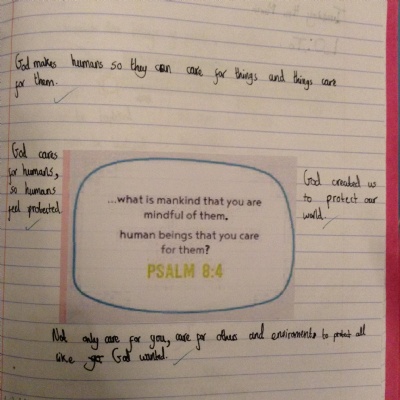 God makes humans so they can care for things and things care
for them.
God cares
for humans,
so humans
feel protected.
...what is mankind that you are
mindful of them,
human beings that you care
for them?
PSALM 8:4
God created us
to protect our
world.
Not only care for you, care for others and environments to protect all
like God wanted.